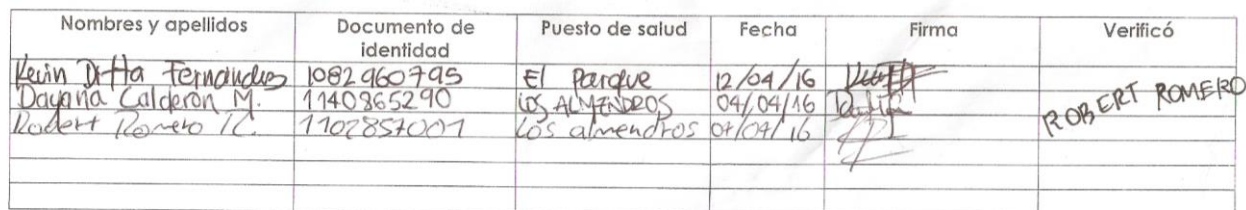 Nombres y apellidos Documento de identidad Puesto de salud Fecha Firma Verificó
Kevin Ditta Fernandez 1082960795 El Parque 12/04/16
Dayana Calderon M. 1140865290 LOS ALMENDROS 04/04/16 ROBERT ROMERO
Robert Romero R. 1102857001 Los almendros 04/04/16